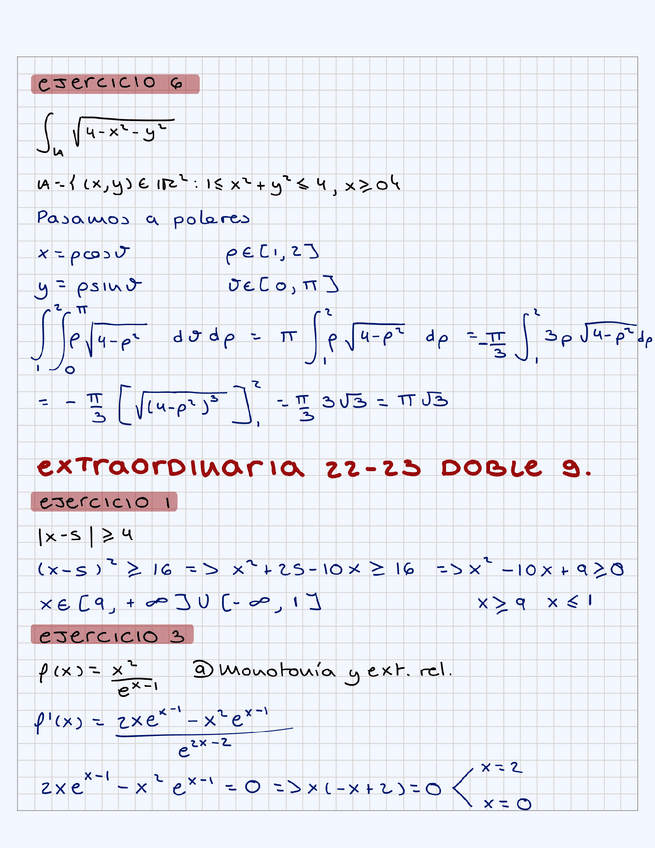 ejercicio 6
∫_u √(4-x²-y²)
u = { (x,y) ∈ ℝ² : 1 ≤ x² + y² ≤ 4, x ≥ 0 }
Pasamos a polares
x = ρcosϑ ρ ∈ [1, 2]
y = ρsinϑ ϑ ∈ [0, π]
∫₁² ∫₀^π ρ√(4-ρ²) dϑ dρ = π ∫₁² ρ √(4-ρ²) dρ = -π/3 ∫₁² 3ρ √(4-ρ²) dρ
= - π/3 [√((4-ρ²)³)]₁² = π/3 3√3 = π√3
extraordinaria 22-23 DOBLE g.
ejercicio 1
|x-5| ≥ 4
(x-5)² ≥ 16 => x² + 25 - 10x ≥ 16 => x² - 10x + 9 ≥ 0
x ∈ [9, +∞] ∪ [-∞, 1] x ≥ 9 x ≤ 1
ejercicio 3
f(x) = x²/e^(x-1) ⓐ Monotonía y ext. rel.
f'(x) = (2xe^(x-1) - x²e^(x-1))/e^(2x-2)
2xe^(x-1) - x² e^(x-1) = 0 => x(-x+2) = 0 < x = 2
x = 0